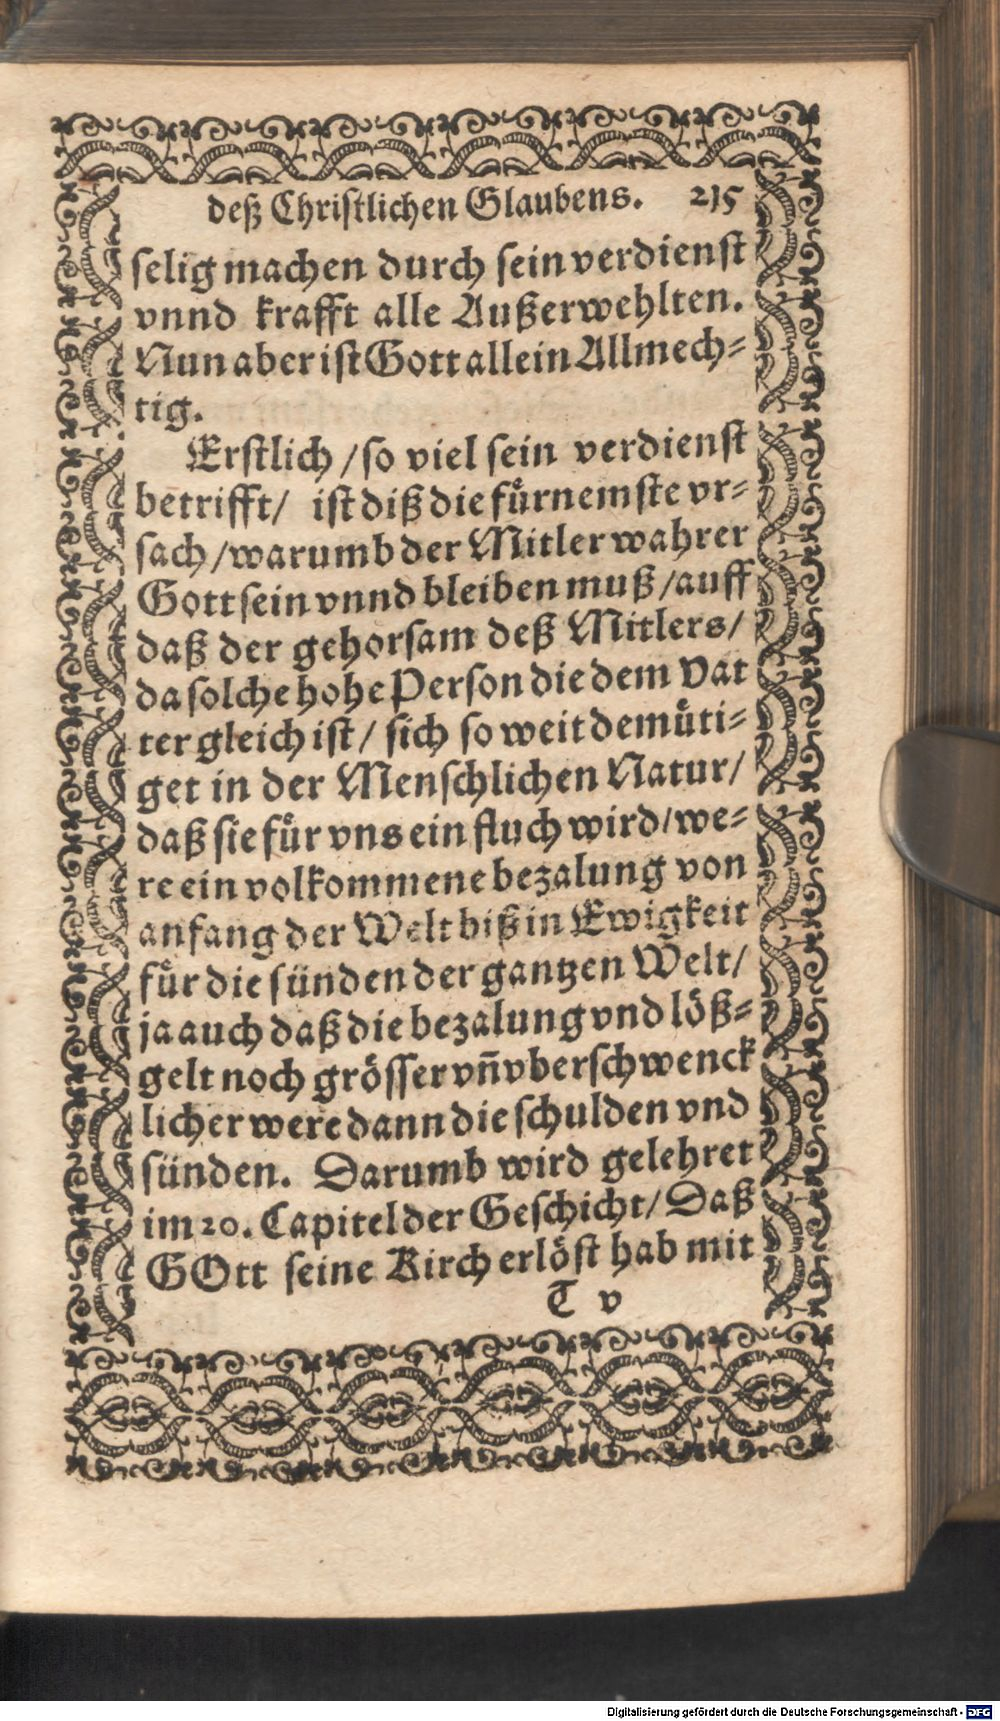 deß Christlichen Glaubens. 215
selig machen durch sein verdienst
vnnd krafft alle Außerwehlten.
Nun aber ist Gott allein Allmech-
tig.
Erstlich / so viel sein verdienst
betrifft / ist diß die fürnemste vr-
sach / warumb der Mitler wahrer
Gott sein vnnd bleiben muß / auff
daß der gehorsam deß Mitlers /
da solche hohe Person die dem Vat
ter gleich ist / sich so weit demüti-
get in der Menschlichen Natur /
daß sie für vns ein fluch wird / we-
re ein volkommene bezalung von
anfang der Welt biß in Ewigkeit
für die sünden der gantzen Welt /
ja auch daß die bezalung vnd löß-
gelt noch grösser vñ vberschwenck
licher were dann die schulden vnd
sünden. Darumb wird gelehret
im 20. Capitel der Geschicht / Daß
GOtt seine Kirch erlöst hab mit
T v
Digitalisierung gefördert durch die Deutsche Forschungsgemeinschaft - DFG